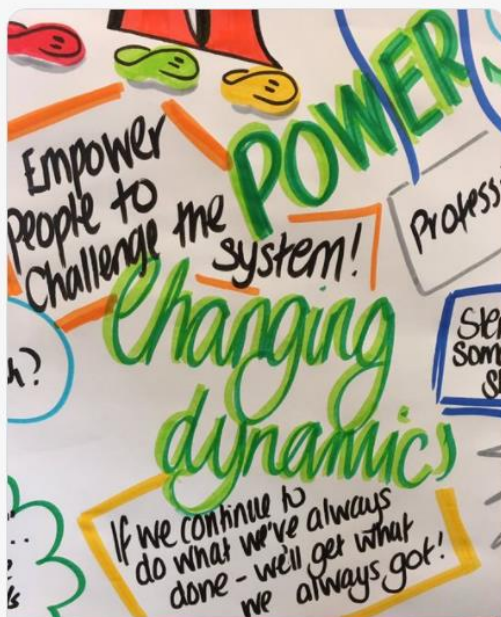 POWER
Empower
People to
Challenge the
system!
Changing
dynamics
h?
If we continue to
do what we've always
done - we'll get what
we always got!